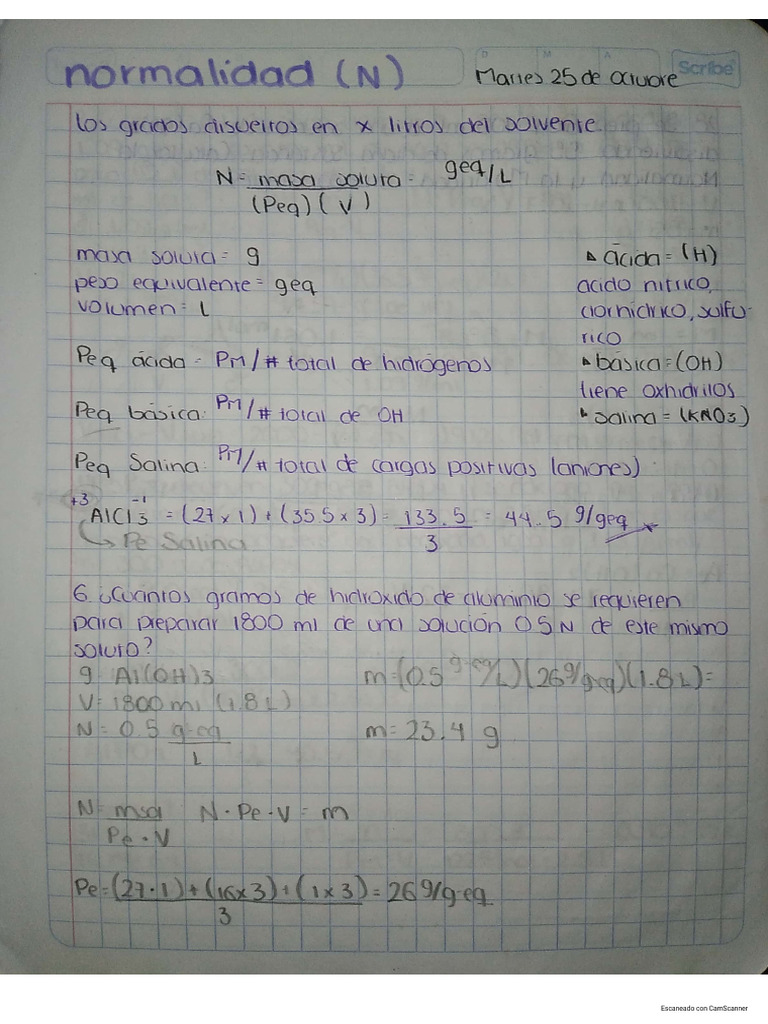 normalidad (N)
Martes 25 de octubre
D M A
Scribe
los grados disueltos en x litros del solvente.
N = masa soluto = geq/L
(Peq) (V)
masa soluta = g
peso equivalente = geq
volumen = L
▲ ácida = (H)
acido nitrico,
clorhídrico, sulfu-
rico
▲ básica = (OH)
tiene oxhidrilos
▲ salina = (KNO3)
Peq ácida = PM/# total de hidrógenos
Peq básica: PM/# total de OH
Peq Salina: PM/# total de cargas positivas (aniones)
+3 -1
AlCl3 = (27 x 1) + (35.5 x 3) = 133.5 = 44.5 g/geq
3
Pe Salina
6. ¿Cuántos gramos de hidróxido de aluminio se requieren
para preparar 1800 ml de una solución 0.5 N de este mismo
soluto?
g Al(OH)3
V = 1800 ml (1.8 L)
N = 0.5 g-eq
L
m = (0.5 g-eq/L) (26 g/g-eq) (1.8 L) =
m = 23.4 g
N = msol N · Pe · V = m
Pe · V
Pe = (27 · 1) + (16 x 3) + (1 x 3) = 26 g/g-eq
3
Escaneado con CamScanner